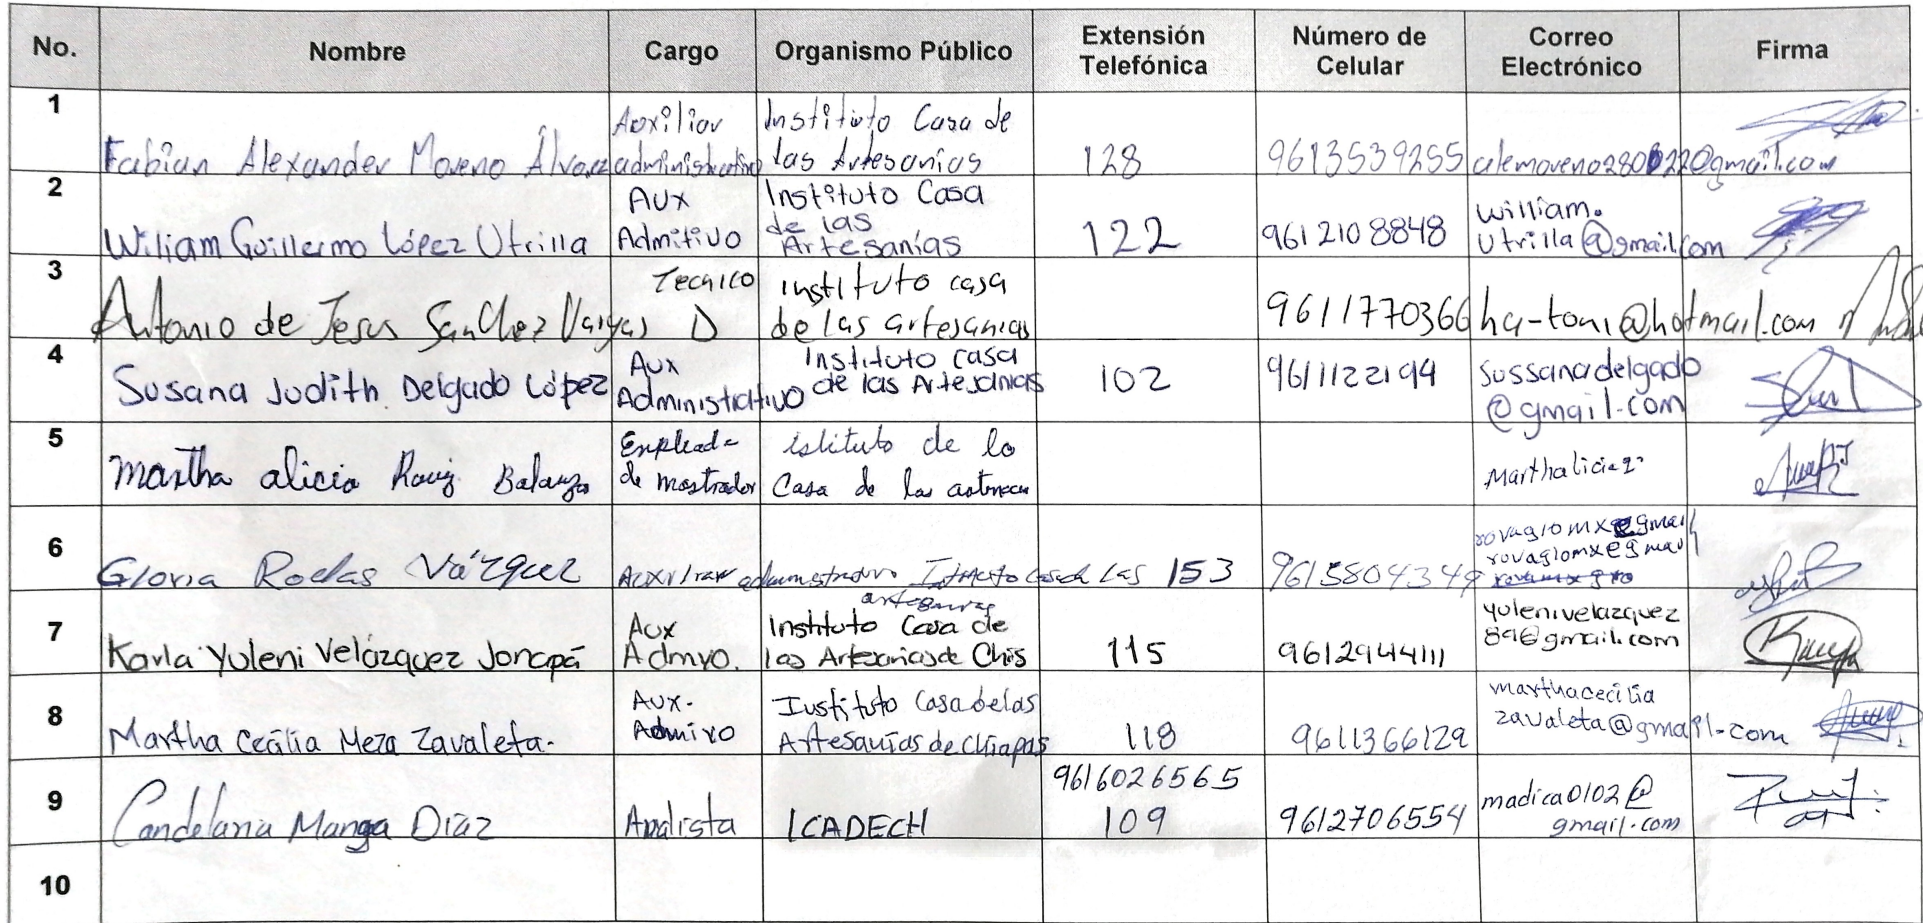 No. Nombre Cargo Organismo Público Extensión Telefónica Número de Celular Correo Electrónico Firma
1 Fabian Alexander Moreno Álvarez Auxiliar administrativo Instituto Casa de las Artesanías 128 9613539255 @gmail.com
2 Wiliam Guillermo López Utrilla Aux Admitivo Instituto Casa de las Artesanías 122 9612108848 william.utrilla@gmail.com
3 Antonio de Jesus Sanchez Vargas Tecnico D instituto casa de las artesanias 9611770366 ha-toni@hotmail.com
4 Susana Judith Delgado López Aux Administrativo Instituto casa de las Artesanias 102 9611122194 sussanadelgado@gmail.com
5 Martha alicia Ruiz Empleada de mostrador istituto de la Casa de las
6 Gloria Rodas Vázquez Auxiliar administrativo casa de las 153 9615804349 rovaglomx@gmail
7 Karla Yuleni Velázquez Jonapá Aux Admvo. Instituto Casa de las Artesanias de Chis 115 9612944111 yulenivelazquez89@gmail.com
8 Martha Cecilia Meza Zavaleta. Aux. Admivo Instituto Casa de las Artesanías de Chiapas 118 9611366129 marthaceciliazavaleta@gmail.com
9 Candelaria Manga Díaz Analista ICADECH 9616026565 109 9612706554 madica0102@gmail.com
10